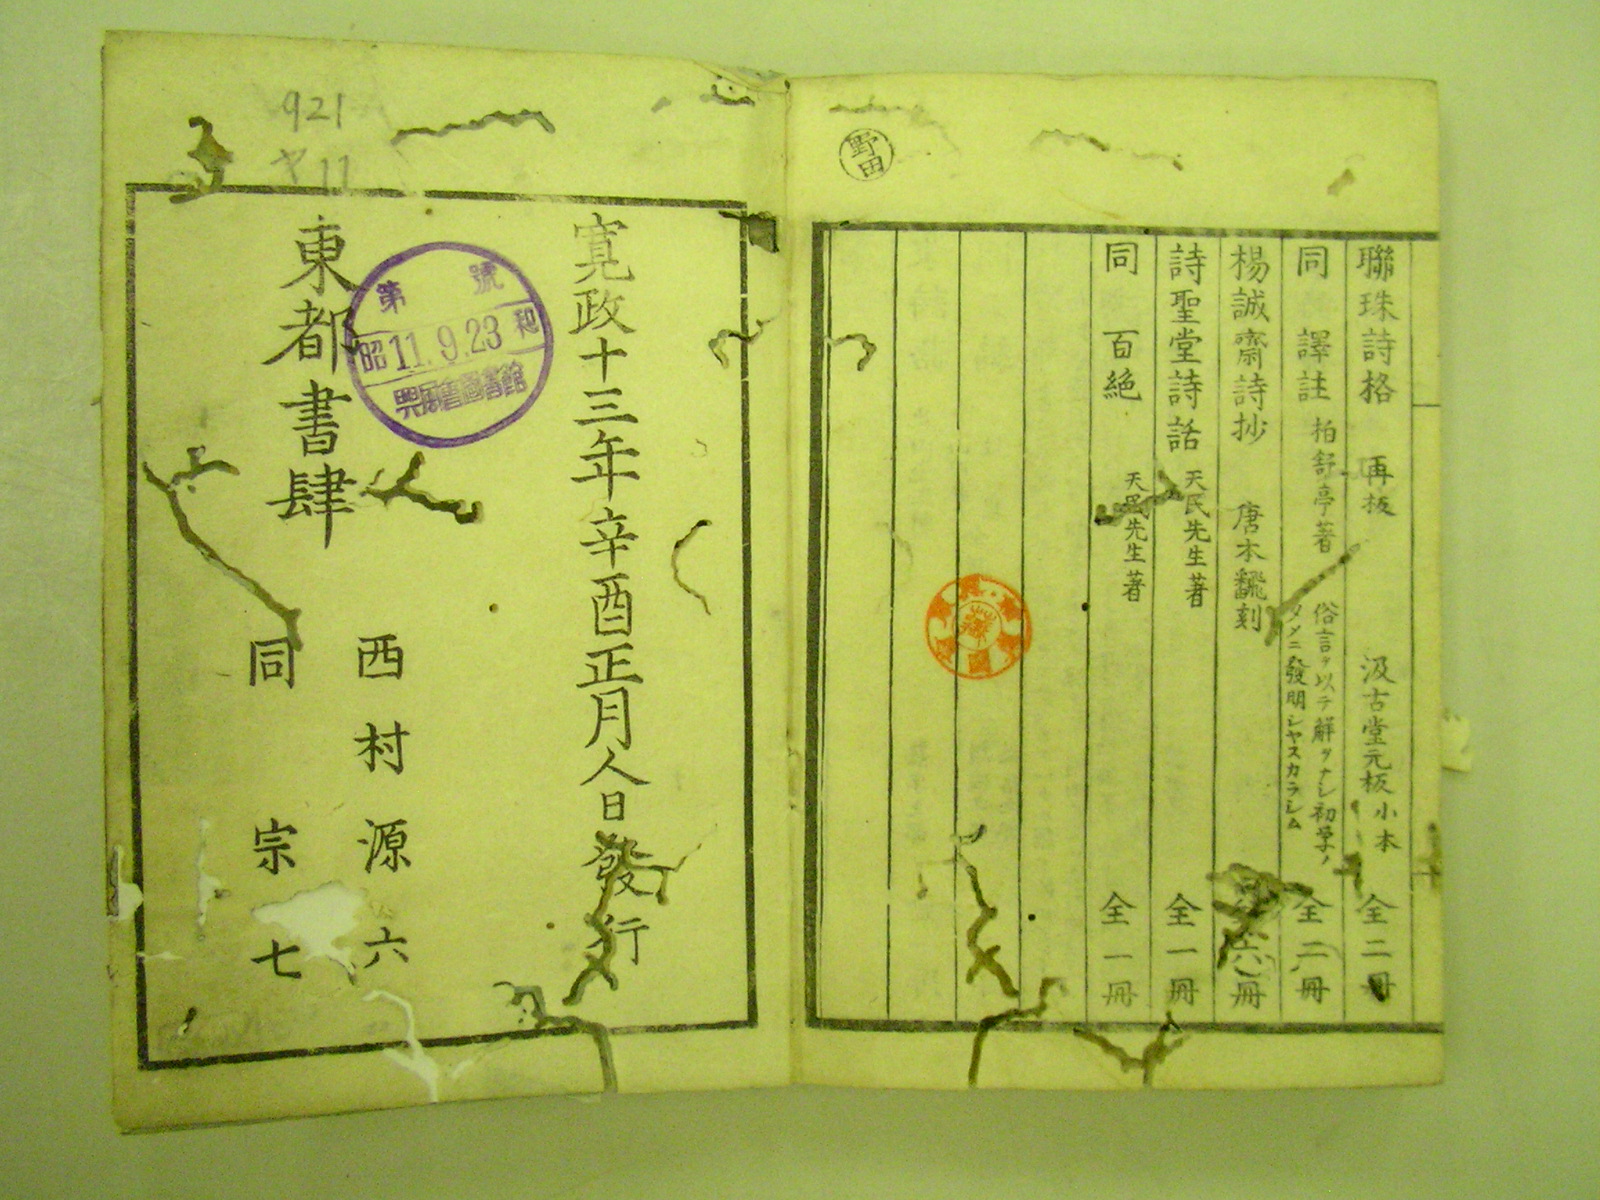 野田
聯珠詩格 再板 汲古堂元板小本 全二冊
同 譯註 柏舒亭著 俗言ヲ以テ解ヲナシ初学ノ
タメニ發明シヤスカラシム 全二冊
楊誠齋詩抄 唐本飜刻 六冊
詩聖堂詩話 天民先生著 全一冊
同 百絶 天民先生著 全一冊
921
ヤ11
寛政十三年辛酉正月人日發行
東都書肆
西村源六
同 宗七
第 號
昭和
11.9.23
興風會圖書館